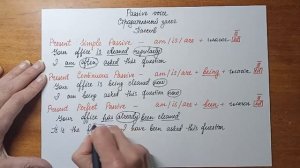 Passive voice
Страдательный залог
Present Simple Passive - am/is/are + глагол III
Your office is cleaned regularly
I am often asked this question
Present Continuous Passive - am/is/are + being + глагол III
Your office is being cleaned now
I am being asked this question now
Present Perfect Passive - am/is/are + been + глагол III
Your office has already been cleaned
It is the I have been asked this question